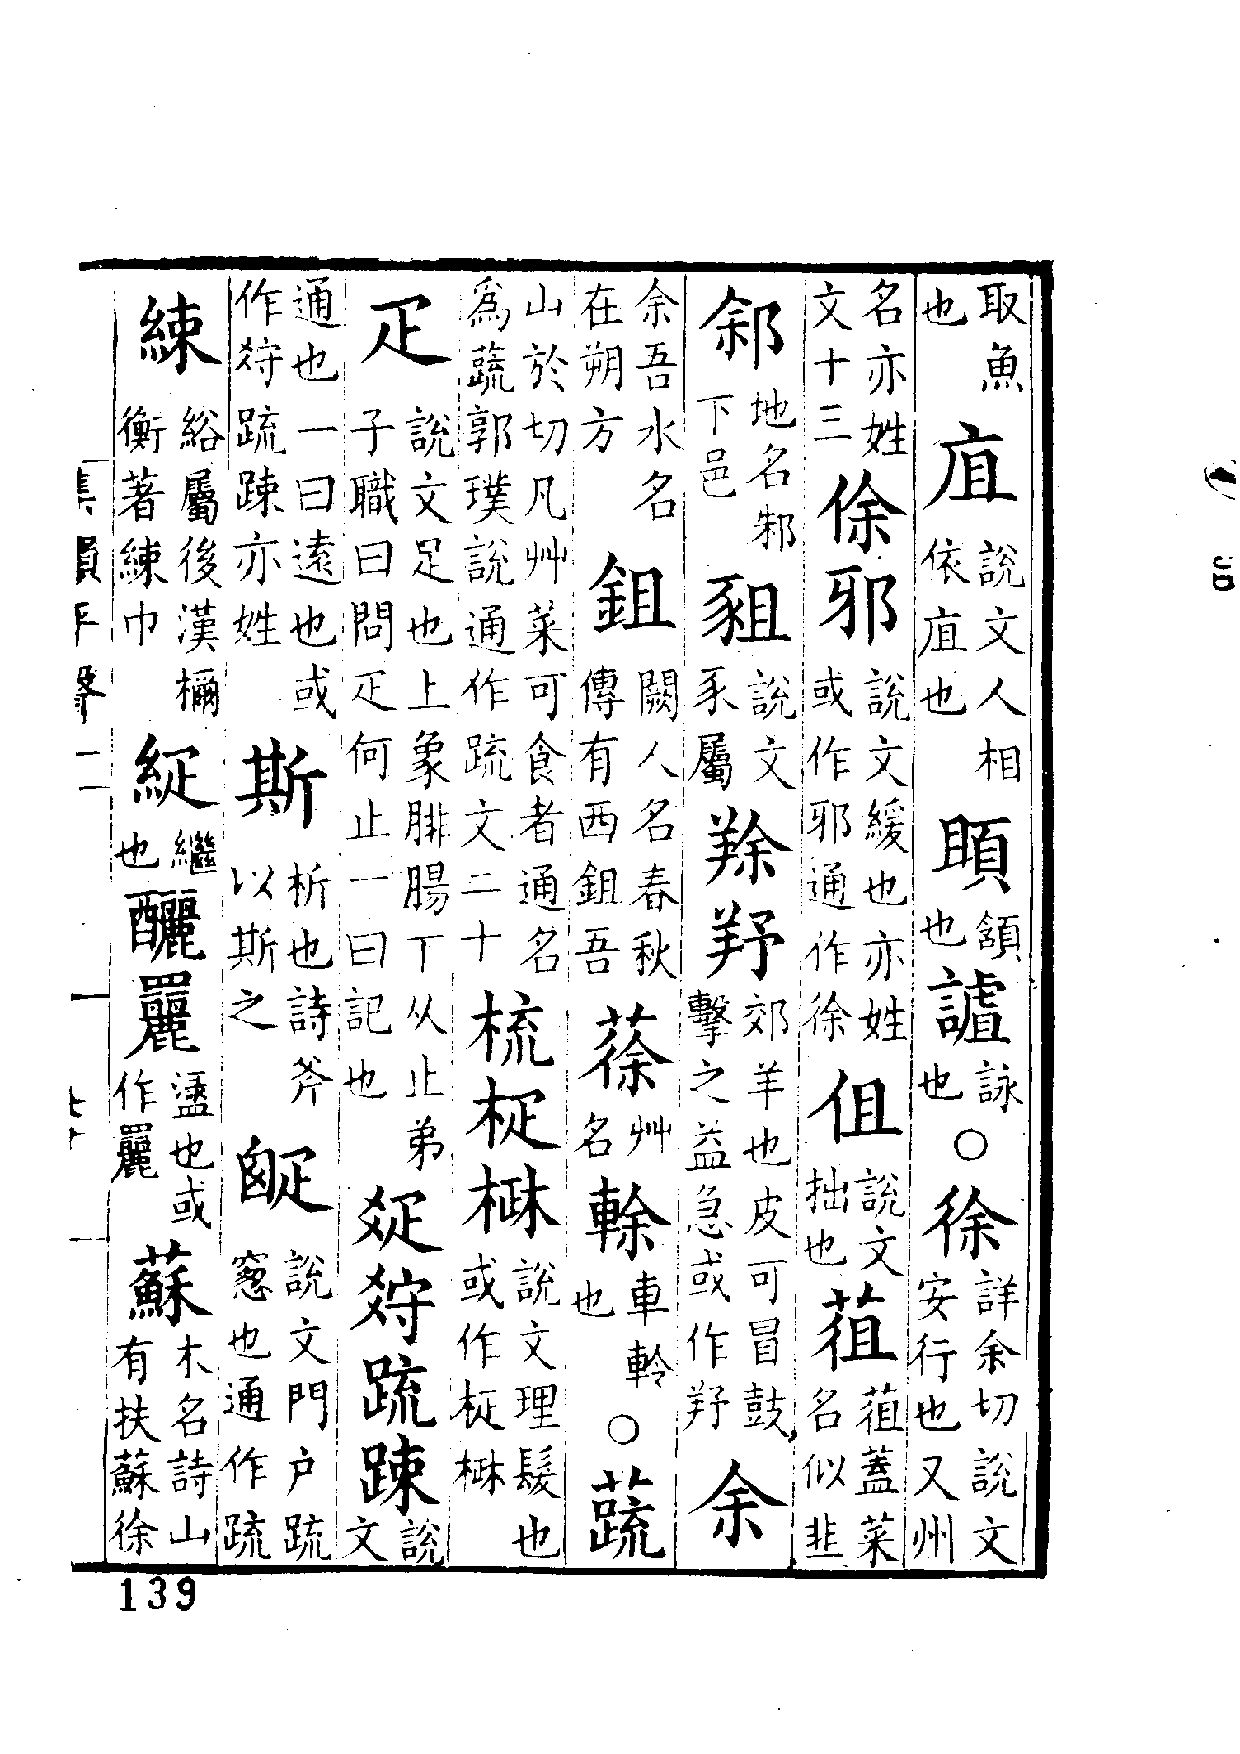 取魚也㡹說文人相依㡹也頷也謯詠也○徐詳余切說文安行也又州
名亦姓文十三俆邪說文緩也亦姓或作邪通作徐伹說文拙也蒩蒩蓋菜名似韭
䣄地名邾下邑豠說文豕屬郊羊也皮可冒鼓擊之益急或作余
余吾水名在朔方鉏闕人名春秋傳有西鉏吾蒣艸名車軨也○蔬
山於切凡艸菜可食者通名爲蔬郭璞說通作疏文二十梳說文理髮也或作
疋說文足也上象腓腸丅从止弟子職曰問疋何止一曰記也疏疎說文
通也一曰遠也或作疏疎亦姓斯析也詩斧以斯之說文門戶疏窻也通作疏
綀綌屬後漢禰衡著綀巾繼也釃盪也或作蘇木名詩山有扶蘇徐
集韻平聲二
139